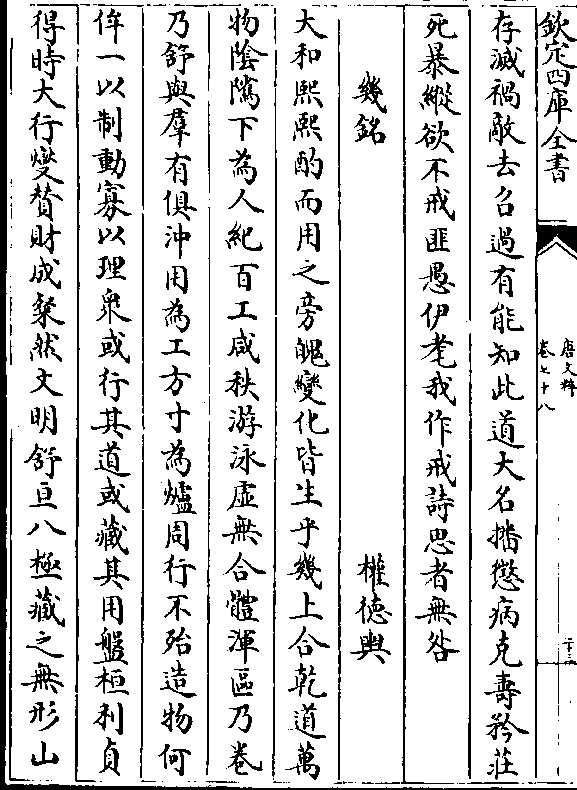 欽定四庫全書
唐文粹
卷七十八
二十三
存滅禍敵去召過有能知此道大名播懲病克壽矜莊
死暴縱欲不戒匪愚伊耄我作戒詩思者無咎
幾銘　權德輿
大和熙熙酌而用之旁魄變化皆生乎幾上合乾道萬
物陰騭下為人紀百工咸秩游泳虛無合體渾區乃卷
乃舒與羣有俱沖用為工方寸為爐周行不殆造物何
侔一以制動寡以理衆或行其道或藏其用盤桓利貞
得時大行爕賛財成粲然文明舒亘八極藏之無形山